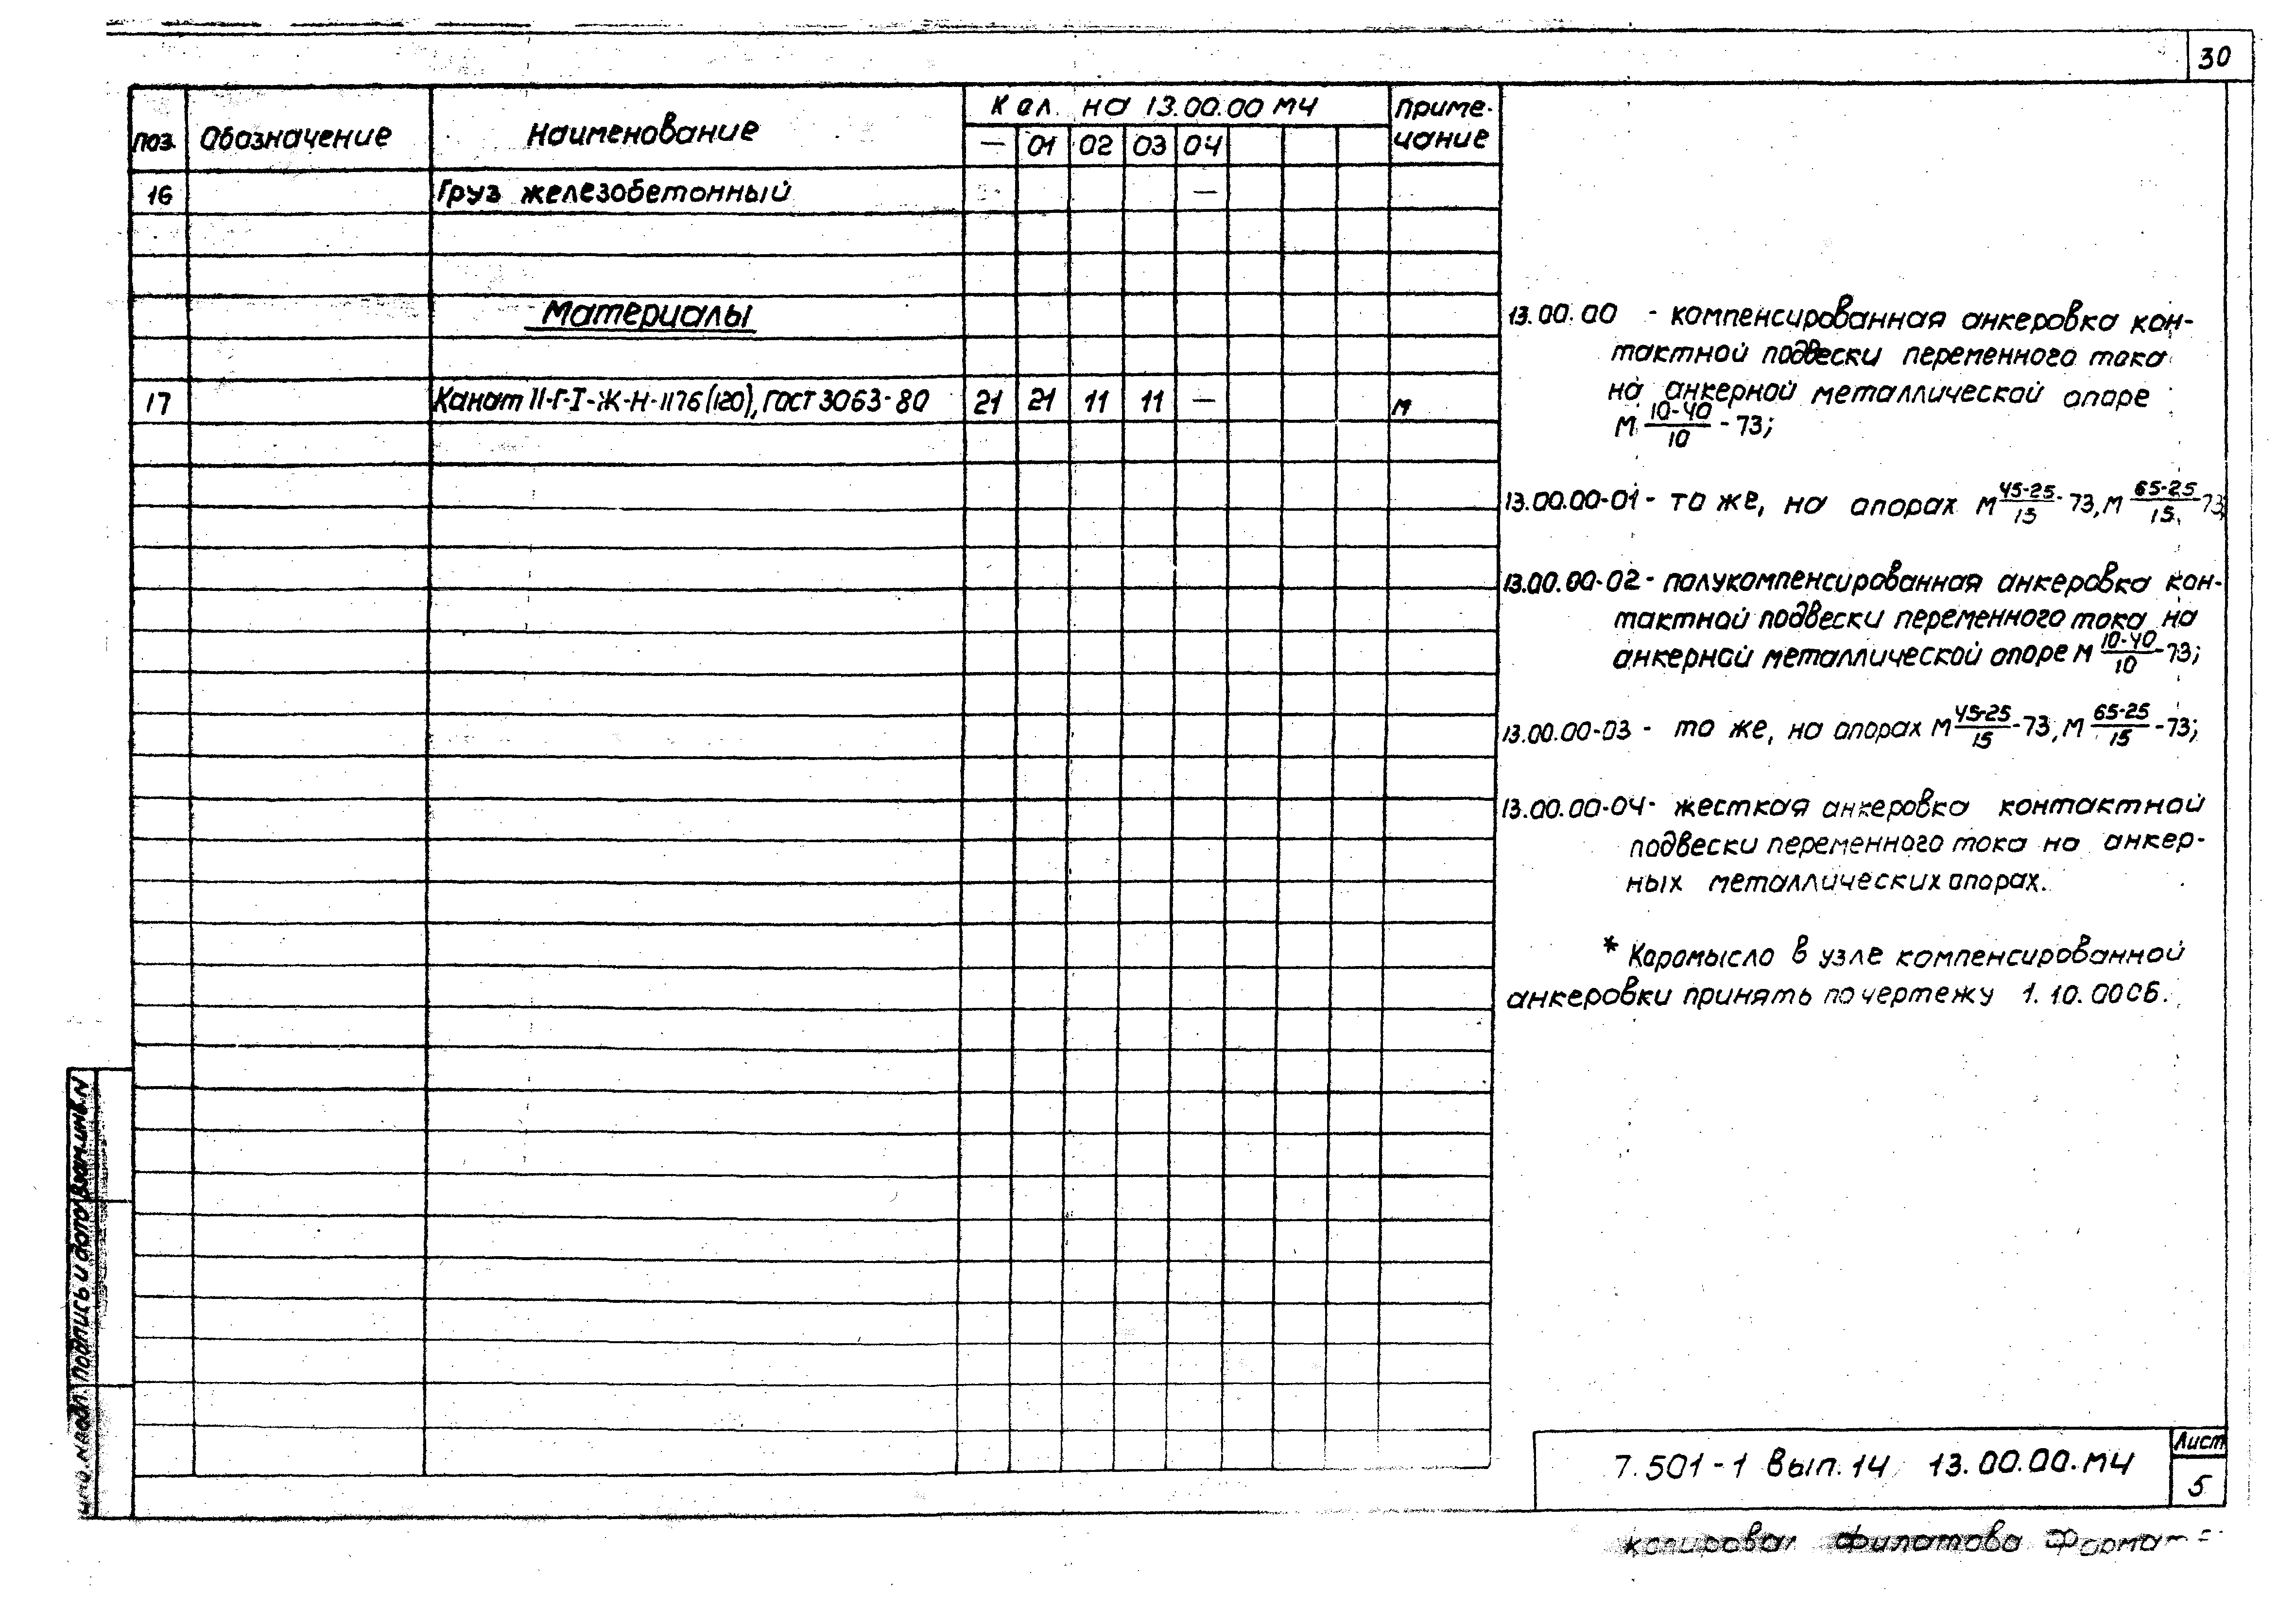 30
поз. Обозначение Наименование Кол. на 13.00.00 МЧ Приме-
чание
— 01 02 03 04
16 Груз железобетонный —
Материалы
17 Канат 11-Г-I-Ж-Н-1176(120), ГОСТ 3063-80 21 21 11 11 — м
13.00.00 - компенсированная анкеровка кон-
тактной подвески переменного тока
на анкерной металлической опоре
М 10-40/10 - 73;
13.00.00-01 - то же, на опорах М 45-25/15 - 73, М 65-25/15 - 73;
13.00.00-02 - полукомпенсированная анкеровка кон-
тактной подвески переменного тока на
анкерной металлической опоре М 10-40/10 - 73;
13.00.00-03 - то же, на опорах М 45-25/15 - 73, М 65-25/15 - 73;
13.00.00-04 - жесткая анкеровка контактной
подвески переменного тока на анкер-
ных металлических опорах.
* Коромысло в узле компенсированной
анкеровки принять по чертежу 1.10.00СБ.
Инв. N подл. Подпись и дата Взам. инв. N
7.501-1 Вып. 14 13.00.00.МЧ
Лист
5
Копировал Филатова Формат